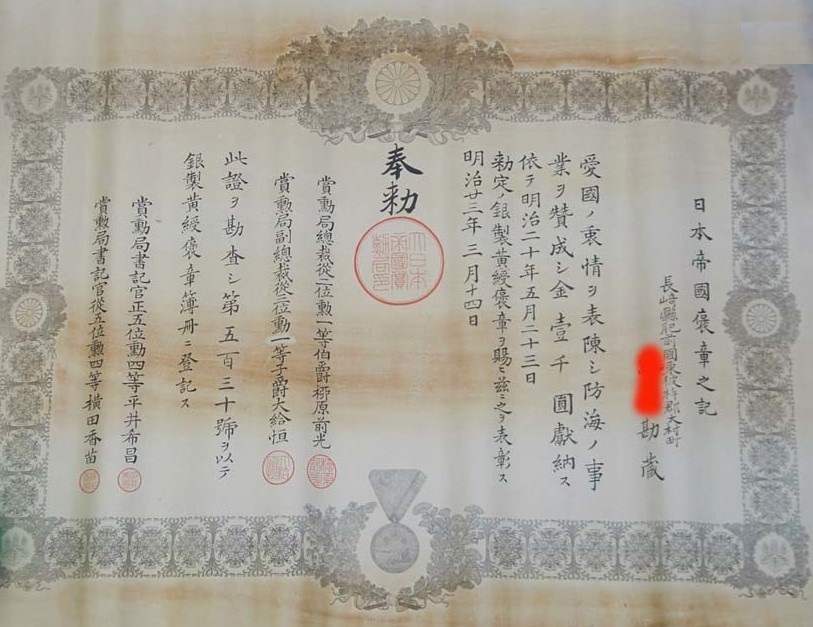 日本帝國褒章之記
長﨑縣肥前國東彼杵郡大村町
勘藏
愛國ノ衷情ヲ表陳シ防海ノ事
業ヲ賛成シ金壹千圓獻納ス
依テ明治二十年五月二十三日
勅定ノ銀製黃綬褒章ヲ賜ヒ茲ニ之ヲ表彰ス
明治廿三年三月十四日
奉勅
大日本
帝國賞
勳局印
賞勳局總裁從二位勳一等伯爵柳原前光
賞勳局副總裁從三位勳一等子爵大給恒
此證ヲ勘査シ第五百三十號ヲ以テ
銀製黃綬褒章簿冊ニ登記ス
賞勳局書記官正五位勳四等平井希昌
賞勳局書記官從五位勳四等橫田香苗